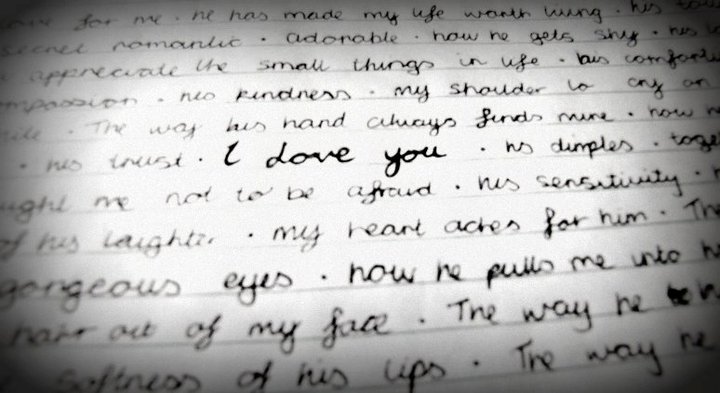 for me · he has made my life worth living · his
secret romantic · adorable · how he gets shy · his
appreciate the small things in life · his
compassion · his kindness · my shoulder to cry on
The way his hand always finds mine · how
· his trust · I love you · his dimples ·
me not to be afraid · his sensitivity ·
of his laughter · my heart aches for him · The
gorgeous eyes · how he pulls me into
hair out of my face · The way he
softness of his lips · The way he